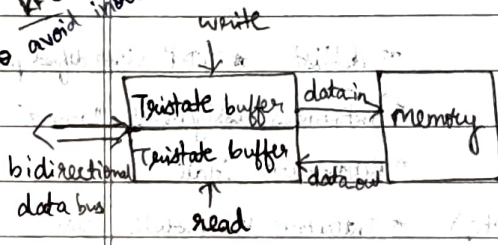 avoid
write
Tristate buffer
data in
memory
Tristate buffer
data out
bidirectional
data bus
read